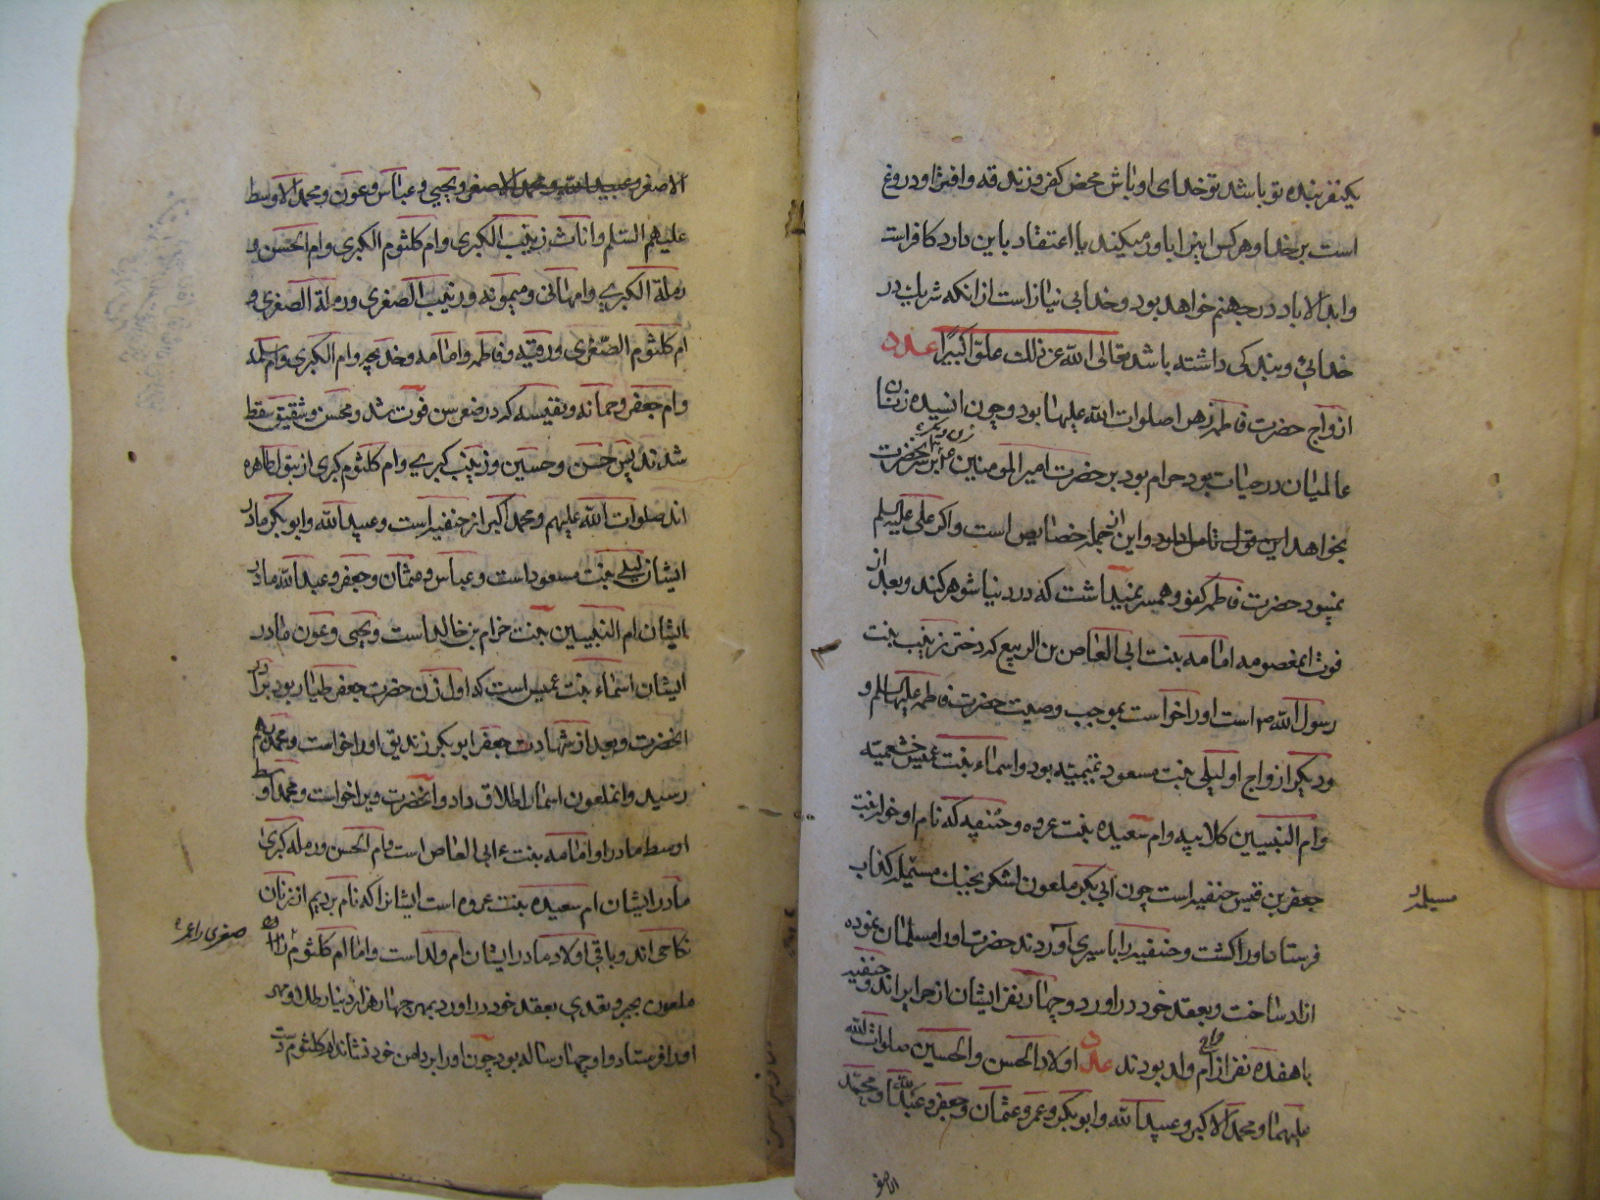 یکنفر بنده تو باشد تو خدای او باش محض کفر و زندقه و افترا و دروغ
است بر خدا و هر کس اینرا باور میکند یا اعتقاد باین دارد کافر است
و ابد الاباد در جهنم خواهد بود و خدا بی نیاز است از انکه شریک در
خدائی و بندکی داشته باشد تعالی الله عن ذلک علوّا کبیرًا عدد
ازواج حضرت فاطمه زهرا صلوات الله علیها بود و چون انسیده زنان
عالمیان در حیات بود حرام بود بر حضرت امیر المومنین
بخواهد این قول تامل دارد و این از جمله خصایص است و اکر علی علیه السلم
نمیبود حضرت فاطمه کفو و همسر نمیداشت که در دنیا شوهر کند و بعد از
فوت انمعصومه امامه بنت ابی العاص بن الربیع که دختر زینب بنت
رسول الله ص است او را خواست بموجب وصیت حضرت فاطمه علیها السلم و
و دیکر ازواج او لیلی بنت مسعود تمیمیّه بود و اسماء بنت عمیس خثعمیّه
و ام النبیین کلابیه و ام سعیده بنت عروه و حنفیه که نام او خوله بنت
جعفر بن قیس حنفیه است چون ابی بکر ملعون لشکر بجنک مسیلمه کذاب
مسیلمه
فرستاد او را کشت و حنفیه را باسیری آوردند حضرت او را مسلمان نموده
ازاد ساخت و بعقد خود در اورد و چهار نفر ایشان از حرایراند و حنفیه
با هفده نفر از ام ولد بودند عدد اولاد الحسن و الحسین صلوات الله
علیهما و محمد الاکبر و عبید الله و ابو بکر و عمر و عثمان و جعفر و عبد الله و محمد
الاصغر
الاصغر و یحیی و عباس و عون و محمد الاوسط
علیهم السّلم و اناث زینب الکبری و ام کلثوم الکبری و ام الحسن و
رملة الکبری و ام هانی و میمونه و زینب الصغری و رملة الصغری و
ام کلثوم الصّغری و رقیه و فاطمه و امامه و خدیجه و ام الکبری و ام سلمه
و ام جعفر و جمانه و نفیسه که در صغر سن فوت شد و محسن و شقیق سقط
شدند پس حسن و حسین و زینب کبری و ام کلثوم کبری از بتول طاهره
اند صلوات الله علیهم و محمد اکبر از حنفیه است و عبید الله و ابو بکر مادر
ایشان لیلی بنت مسعود است و عباس و عثمان و جعفر و عبد الله مادر
ایشان ام النبیین بنت حزام بن خالد است و یحیی و عون مادر
ایشان اسماء بنت عمیس است که اول زن حضرت جعفر طیار بود برادر
انحضرت و بعد از شهادت جعفر ابو بکر زندیق او را خواست و محمد بهم
رسید و انملعون اسما را طلاق داد و انحضرت ویرا خواست و محمد اوسط
اوسط مادر او امامه بنت ابی العاص است و ام الحسن و رمله کبری
مادر ایشان ام سعیده بنت عروه است ایشانرا که نام بردیم از زنان
نکاحی اند و باقی اولاد مادر ایشان ام ولد است و اما ام کلثوم
صغری را عمر
ملعون بجبر و تعدی بعقد خود در اورد بمهر چهار هزار دینار طلا و مهر
او را فرستاد و او چهار ساله بود چون او را بر دامن خود نشاند ام کلثوم دست